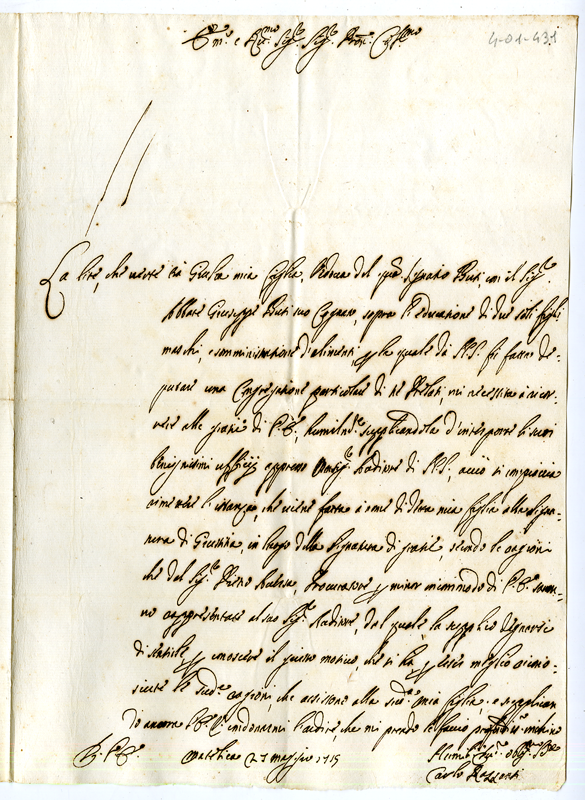 4-01-431
Em.o e Rev.mo Sig.r Sig.r Pron. Col.mo
La lite, che verte trà Giulia mia figlia, Vedova del qm Ignatio Buti con il Sig.r
Abbate Giuseppe Buti suo Cognato, sopra l'educatione di due soli figli
maschi, e somministratione d'alimenti, p la quale da N.S. fù fatta de-
putare una Congregatione particolare di tre Prelati, mi necessita à ricor-
rere alle gratie di V.E., humilm.te supplicandola d'interporre li suoi
benignissimi ufficij appresso Monsig.r Auditore di N.S., acciò si compiaccia
rimettere le istanze, che viene fatta à nome di detta mia figlia alla Signa-
tura di Giustitia, in luogo della Signatura di gratia, essendo le cagioni
che dal Sig.r Pietro Procuratore p minor incommodo di V.E. saran-
no rappresentate al suo Sig.r Auditore, dal quale la supplico degnarsi
di sentirle p conoscere il giusto motivo, che si hà p essere meglio ricono-
sciute le sud.e ragioni che assistono alla sud.a mia figlia. e supplican-
do ancora V.E. à condonarmi l'ardire che mi prendo le faccio profondiss.mo inchino
Di V.E. Matelica 27 maggio 1715 Humil.mo Dev.mo Obl.mo Ser.re
Carlo